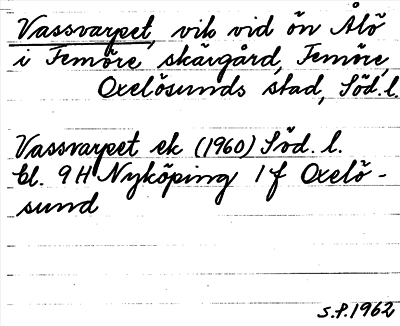 Vassvarpet, vik vid ön Ålö
i Femöre skärgård, Femöre,
Oxelösunds stad, Söd. l.
Vassvarpet ek (1960) Söd. l.
bl. 9H Nyköping 1f Oxelö-
sund
S.P. 1962